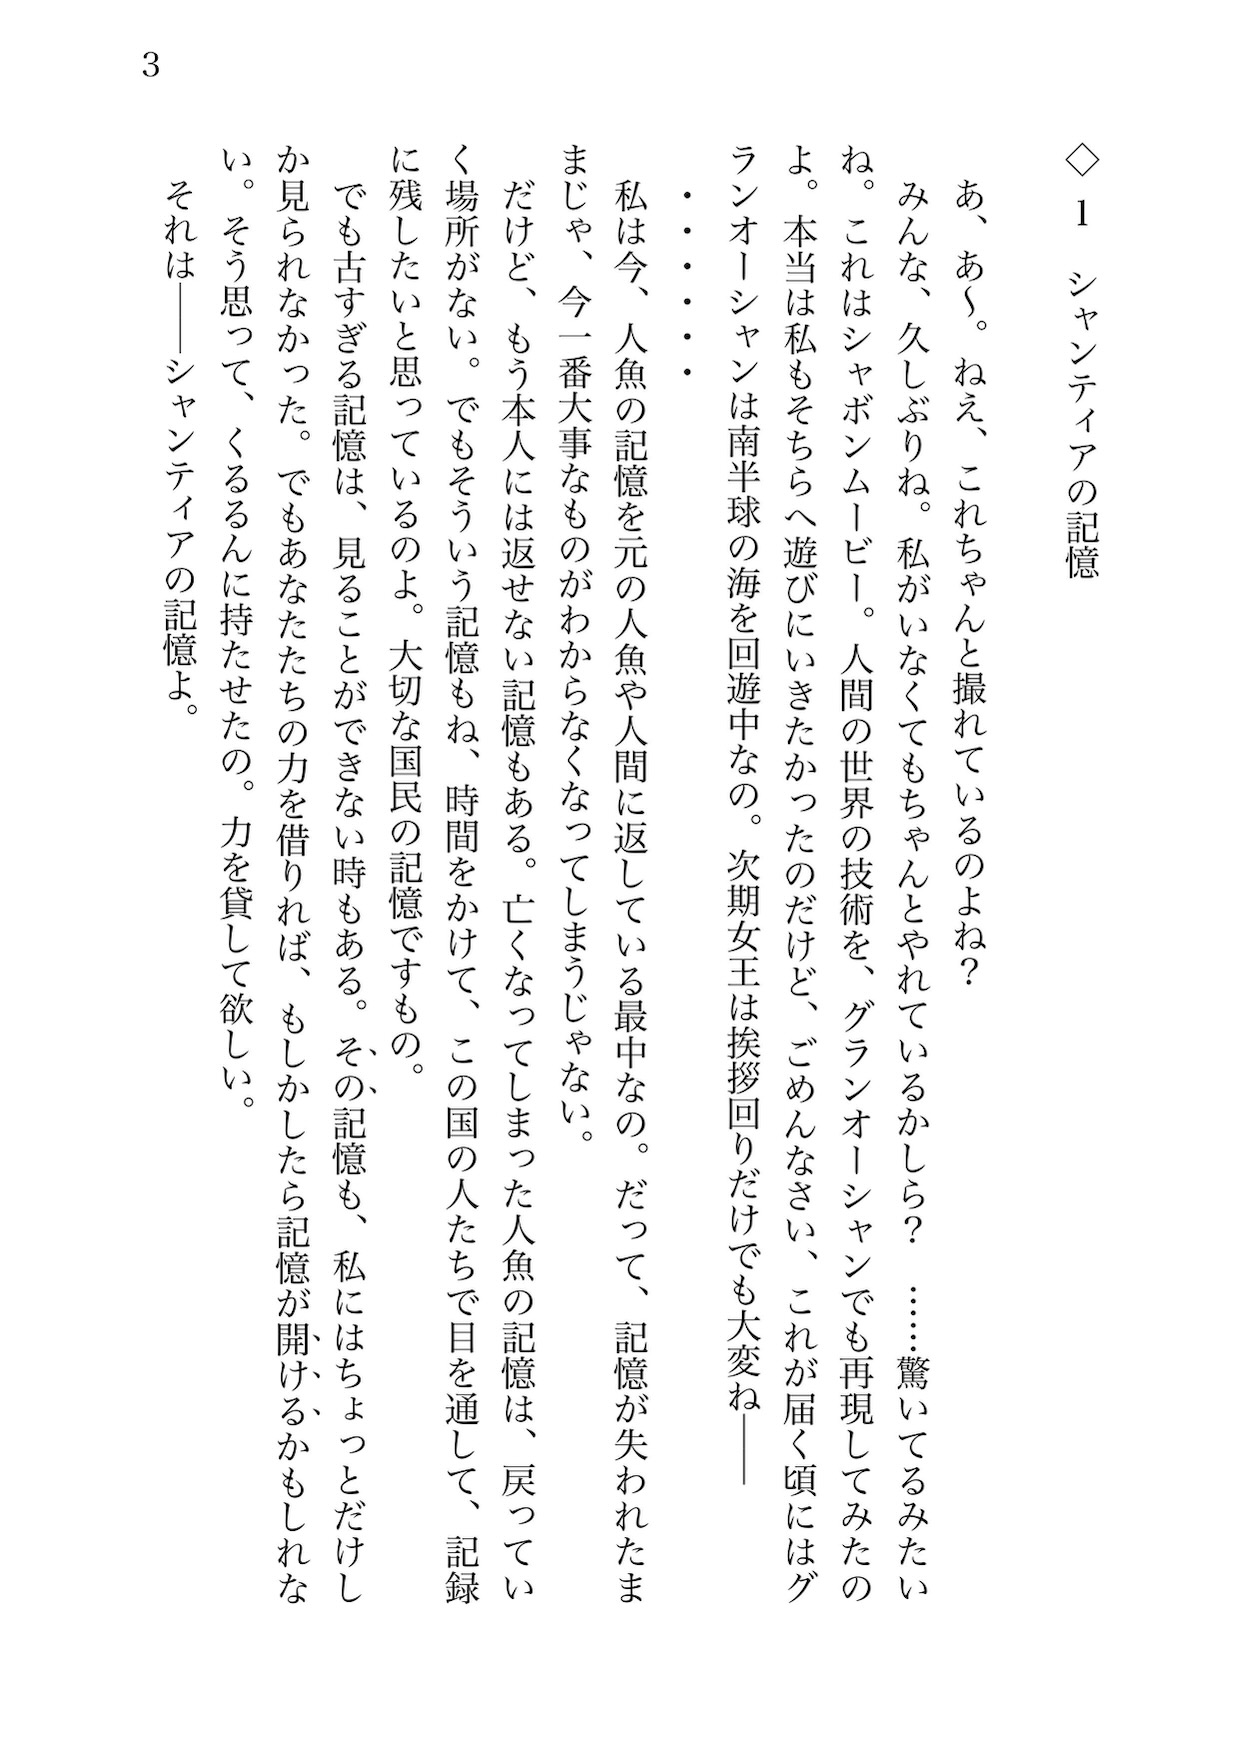 3
◇ 1 シャンティアの記憶
あ、あ〜。ねえ、これちゃんと撮れているのよね？
みんな、久しぶりね。私がいなくてもちゃんとやれているかしら？　……驚いてるみたい
ね。これはシャボンムービー。人間の世界の技術を、グランオーシャンでも再現してみたの
よ。本当は私もそちらへ遊びにいきたかったのだけど、ごめんなさい、これが届く頃にはグ
ランオーシャンは南半球の海を回遊中なの。次期女王は挨拶回りだけでも大変ね――
・・・・・・
私は今、人魚の記憶を元の人魚や人間に返している最中なの。だって、記憶が失われたま
まじゃ、今一番大事なものがわからなくなってしまうじゃない。
だけど、もう本人には返せない記憶もある。亡くなってしまった人魚の記憶は、戻ってい
く場所がない。でもそういう記憶もね、時間をかけて、この国の人たちで目を通して、記録
に残したいと思っているのよ。大切な国民の記憶ですもの。
でも古すぎる記憶は、見ることができない時もある。その記憶も、私にはちょっとだけし
か見られなかった。でもあなたたちの力を借りれば、もしかしたら記憶が開けるかもしれな
い。そう思って、くるるんに持たせたの。力を貸して欲しい。
それは――シャンティアの記憶よ。